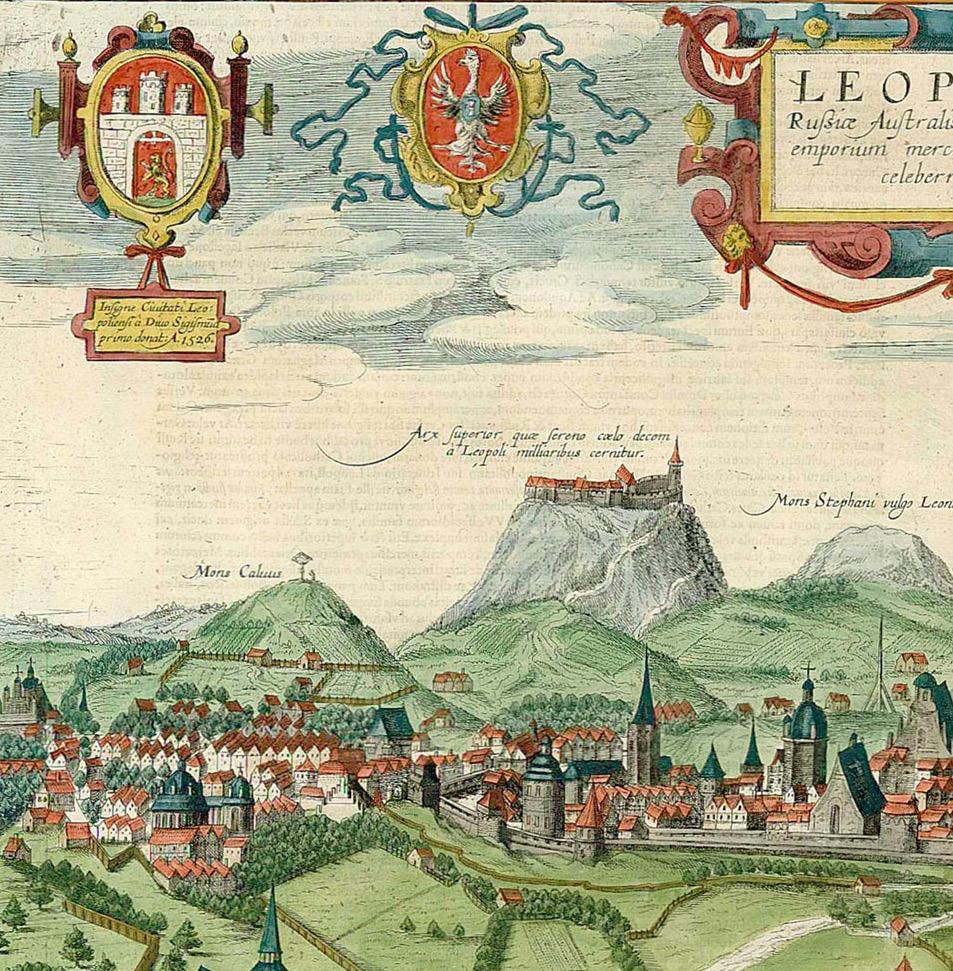 LEOP
Rußiæ Australi
emporium merc
celeberr
Insigne Civitati Leo:
poliensi à Divo Sigismūd
primo donat: A. 1526.
Arx superior, quæ sereno cælo decem
à Leopoli milliaribus cernitur.
Mons Stephani vulgo Leon
Mons Caluus